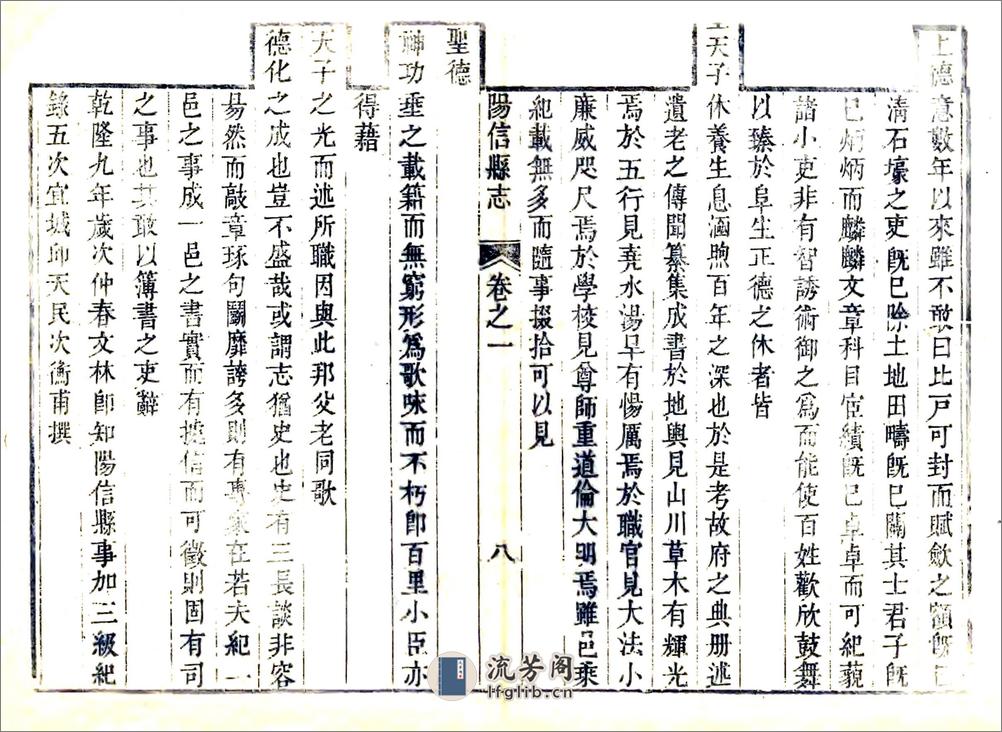 上德意數年以來雖不敢曰比戶可封而賦斂之額既已
清石壕之吏既已除土地田疇既已闢其士君子既
已炳炳而麟麟文章科目宦績既已卓卓而可紀藐
諸小吏非有智誘術御之爲而能使百姓歡欣鼓舞
以臻於阜生正德之休者皆
天子休養生息涵煦百年之深也於是考故府之典册述
遺老之傳聞纂集成書於地輿見山川草木有輝光
焉於五行見堯水湯旱有惕厲焉於職官見大法小
廉威咫尺焉於學校見尊師重道倫大明焉雖邑乘
紀載無多而隨事掇拾可以見
陽信縣志 卷之一 八
聖德
神功垂之載籍而無窮形爲歌咏而不朽卽百里小臣亦
得藉
天子之光而述所職因與此邦父老同歌
德化之成也豈不盛哉或謂志猶史也史有三長談非容
易然而敲章琢句鬭靡誇多則有專家在若夫紀一
邑之事成一邑之書實而有據信而可徵則固有司
之事也其敢以簿書之吏辭
乾隆九年歲次仲春文林郎知陽信縣事加三級紀
錄五次宜城邱天民次衡甫撰
流芳阁
lfglib.cn